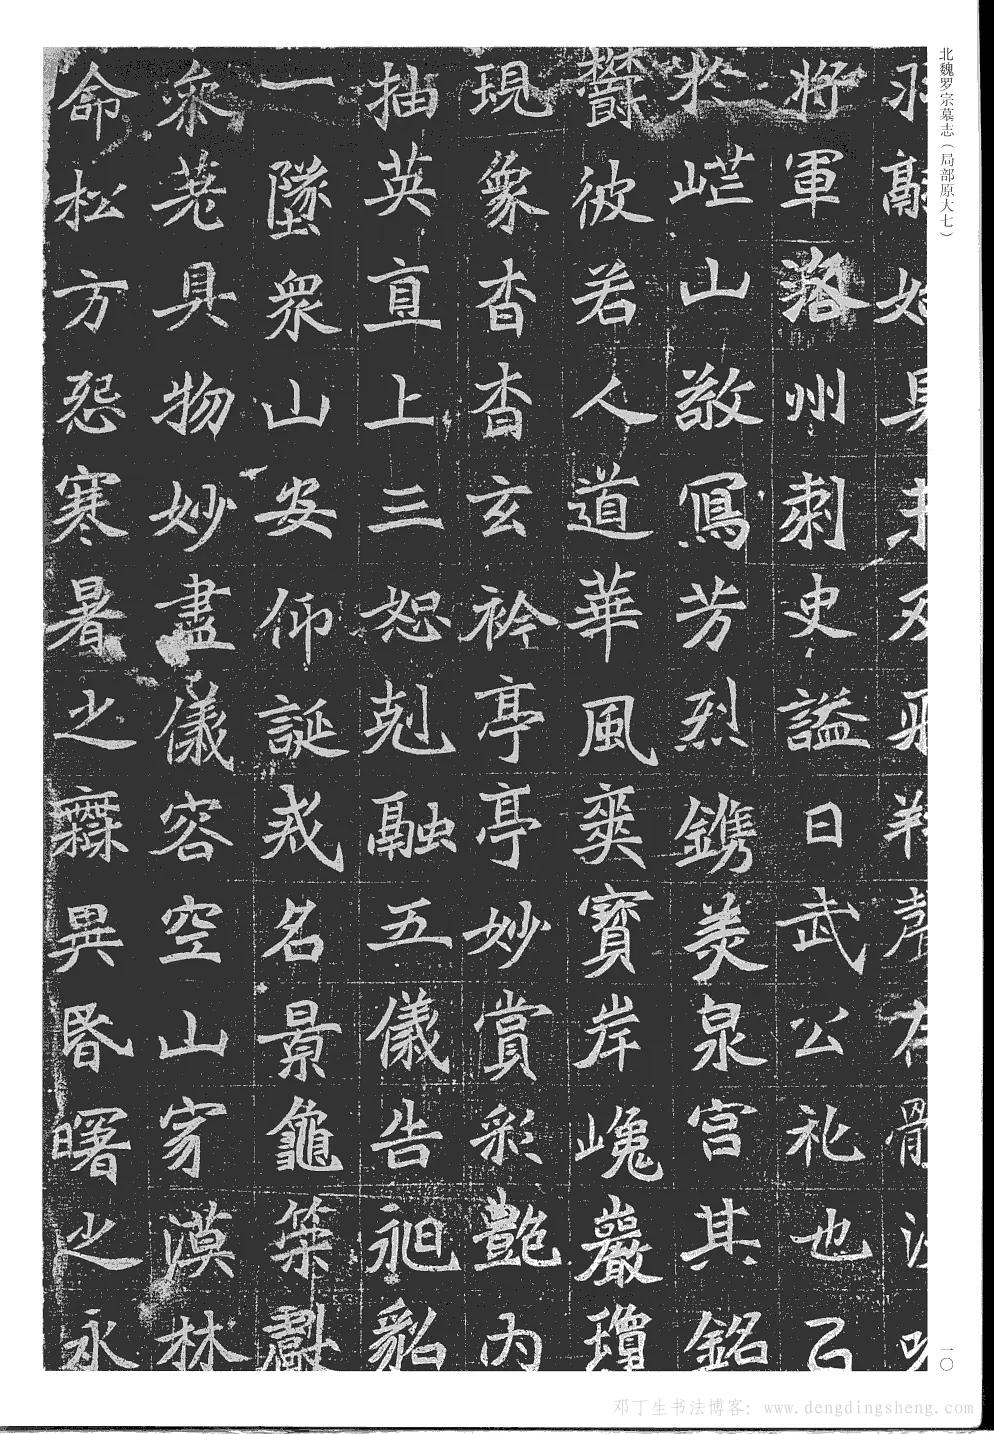 北魏罗宗墓志（局部原大七）
将軍洛州刺史謚曰武公礼也乙
於芒山敬寫芳烈鐫美泉宫其銘
欝彼若人道華風奕寳岸嵬巖瓊
現象杳杳玄衿亭亭妙賞彩艶内
抽英直上三恕剋融五儀告昶貂
一墜衆山安仰誕戒名景龜筞
具物妙盡儀容空山家漠林
命松方怨寒暑之異昏曙之永
一〇
邓丁生书法博客：www.dengdingsheng.com